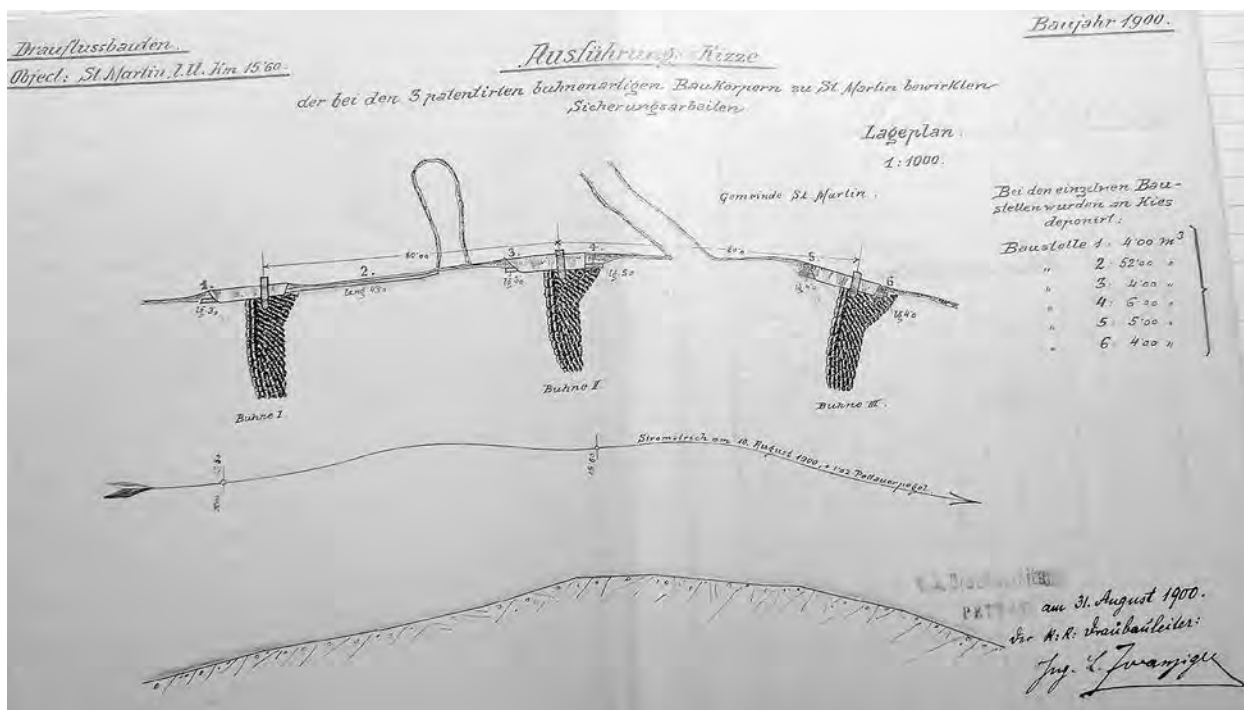 Drauflussbauten.
Object: St. Martin, l. U. Km 15·60.
Baujahr 1900.
Ausführungs-Skizze
der bei den 3 patentirten buhnenartigen Baukörpern zu St. Martin bewirkten
Sicherungsarbeiten
Lageplan.
1:1000.
Gemeinde St. Martin.
Bei den einzelnen Bau-
stellen wurden an Kies
deponirt:
Baustelle 1: 4·00 m³
" 2: 52·00 "
" 3: 4·00 "
" 4: 6·00 "
" 5: 5·00 "
" 6: 4·00 "
1.
2.
3.
4.
5.
6
60·00
60·0
lang 43·0
Buhne I.
Buhne II
Buhne III.
Stromstrich am 10. August 1900, + 1·02 Pettauerpegel.
15·60
am 31. August 1900.
Der K: K: Draubauleiter:
Ing. L.